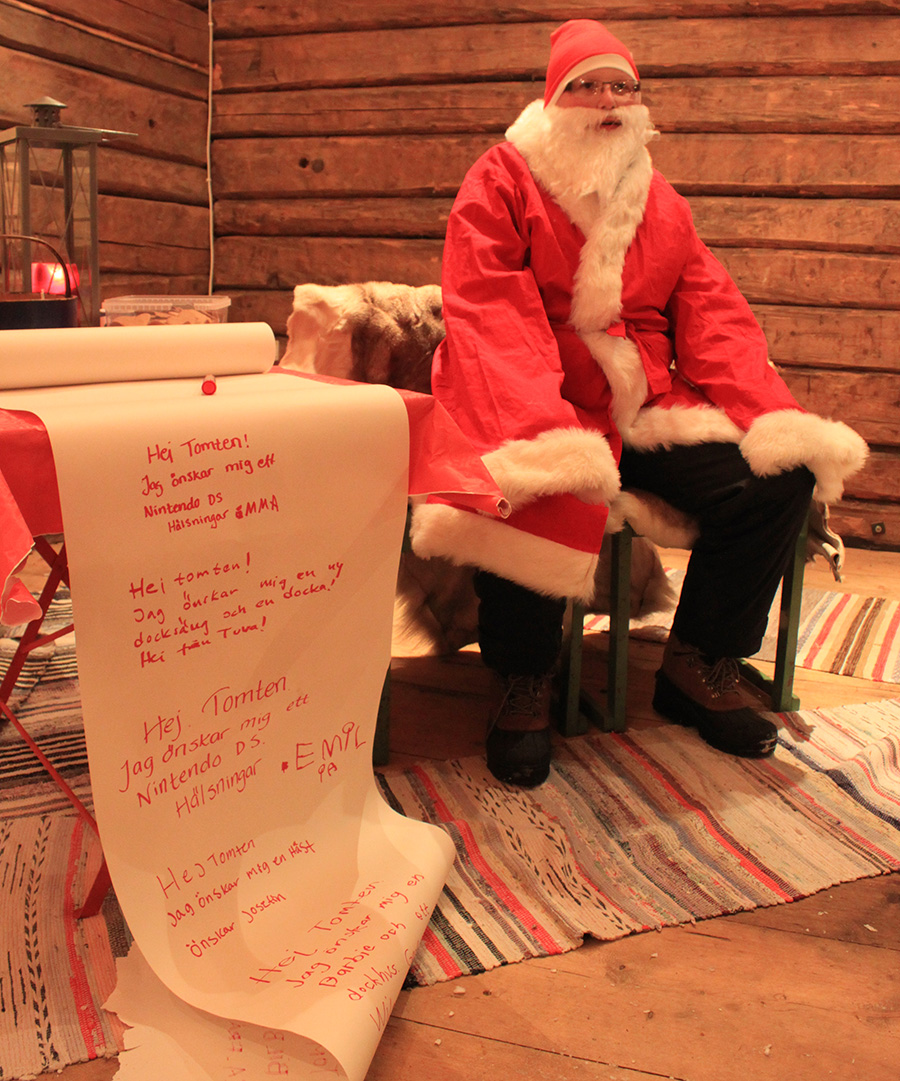 Hej Tomten!
Jag önskar mig ett
Nintendo DS
Hälsningar EMMA
Hej tomten!
Jag önskar mig en ny
docksäng och en docka!
Hej från Tuva!
Hej Tomten
Jag önskar mig ett
Nintendo DS.
Hälsningar EMIL
Hej Tomten
Jag önskar mig en Häst
önskar
Hej Tomten
Jag önskar mig en
Barbie och ett
dockhus